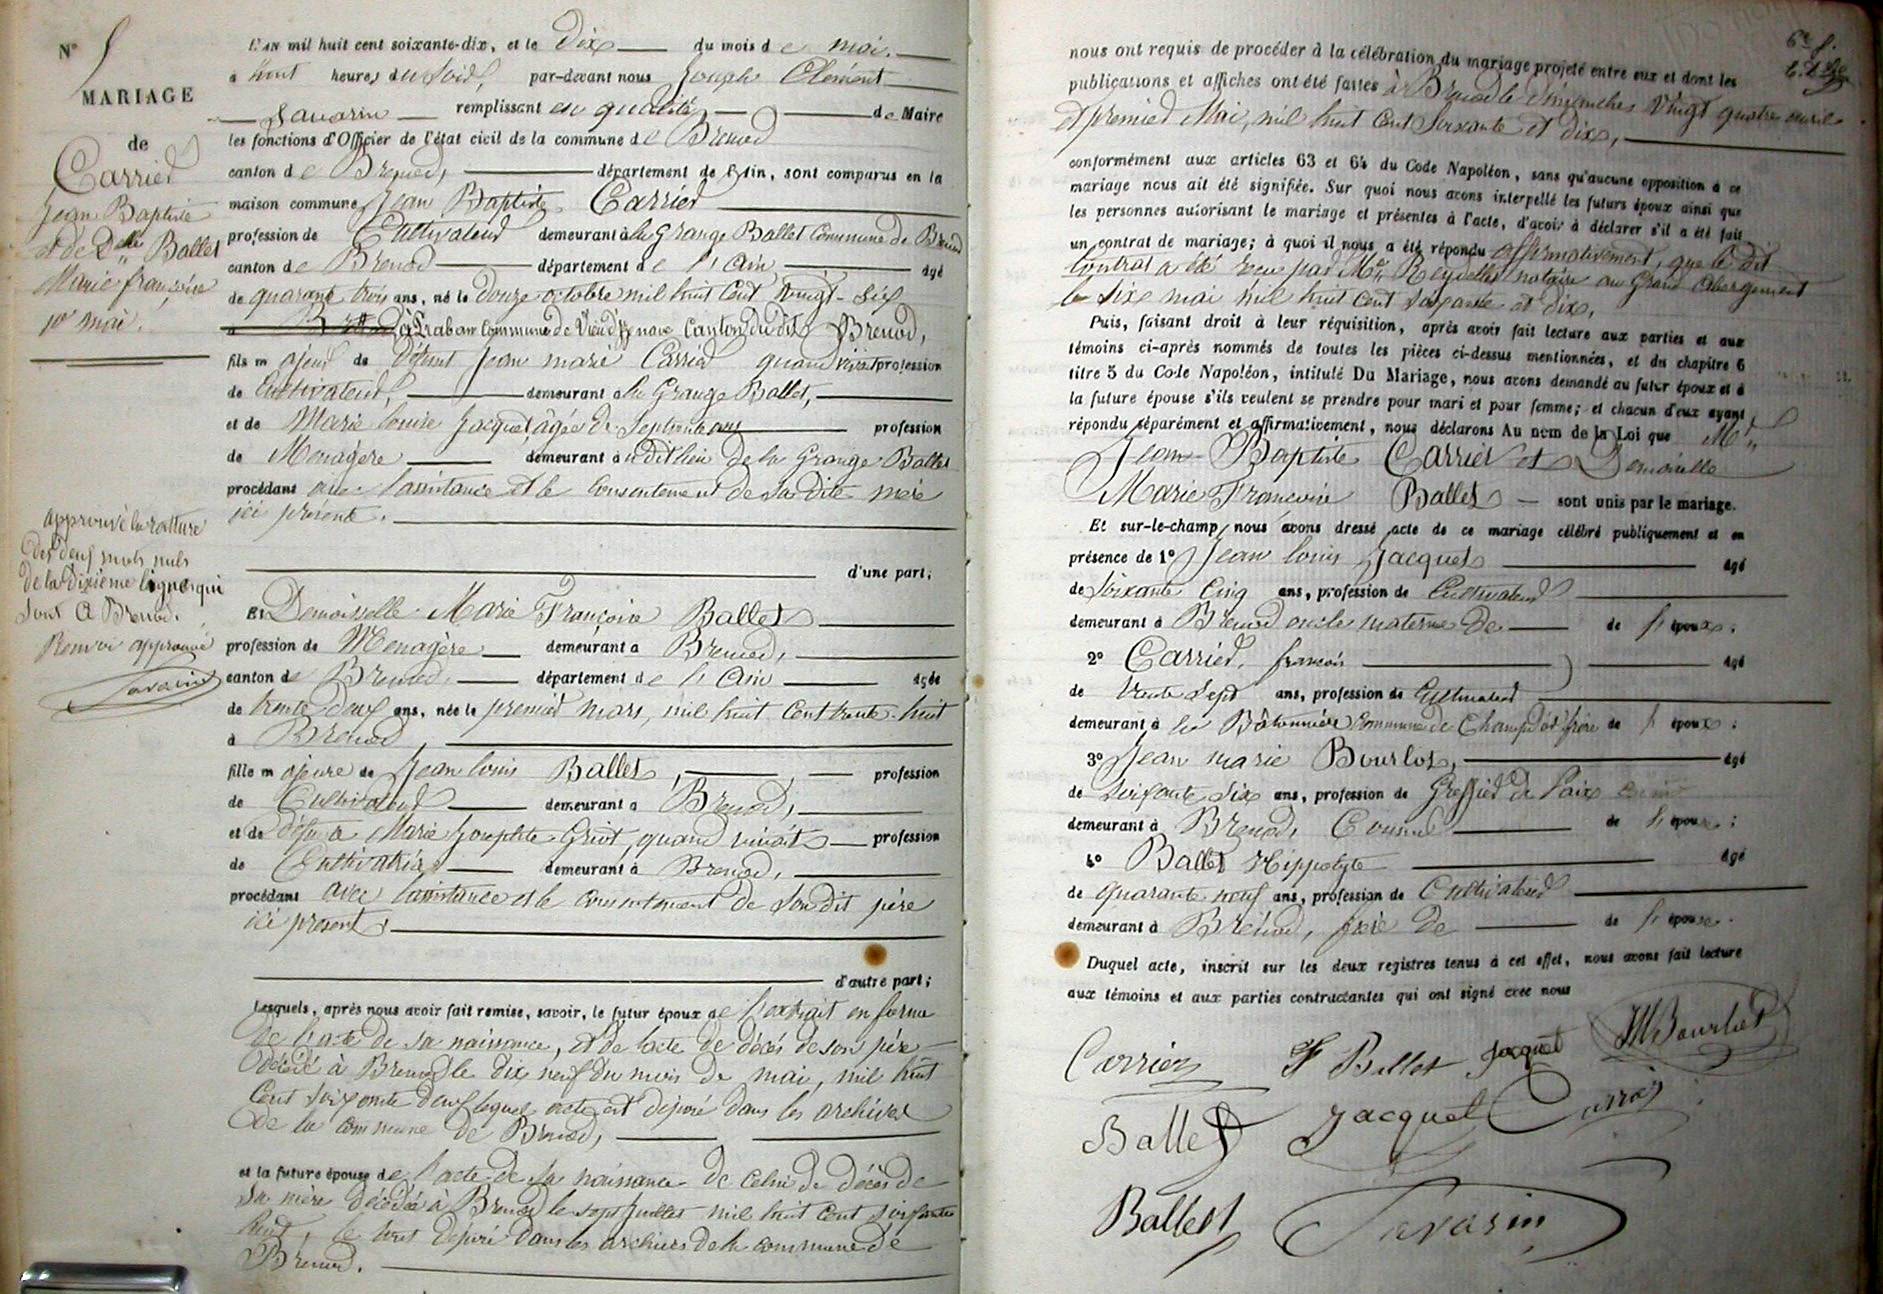 N° 5
MARIAGE
de
Carrier
Jean Baptiste
et de Delle Ballet
Marie françoise
10 mai.
approuvé la rature
des deux mots nuls
de la dixième ligne qui
sont à Brenod.
Renvoi approuvé
Savarin
L'AN mil huit cent soixante-dix, et le dix du mois de mai.
a huit heures du soir, par-devant nous Joseph Clément
Savarin remplissant en qualité de Maire
les fonctions d'Officier de l'état civil de la commune de Brenod
canton de Brenod, département de l'Ain, sont comparus en la
maison commune Jean Baptiste Carrier
profession de Cultivateur demeurant à la Grange Ballet Commune de Brenod
canton de Brenod département de l'Ain âgé
de quarante trois ans, né le douze octobre mil huit cent vingt-six
à Commune de Vieu d'Izenave Canton du dit Brenod,
fils majeur de défunt Jean marie Carrier quand vivait profession
de Cultivateur, demeurant à la Grange Ballet,
et de Marie louise Jacquet, âgée de Septante ans profession
de Menagère demeurant à u dit lieu de la Grange Ballet
procédant avec l'assistance et le consentement de sa dite mère
ici présente.
d'une part;
Et Demoiselle Marie Françoise Ballet
profession de Menagère demeurant à Brenod,
canton de Brenod département de l'Ain âgée
de trente deux ans, née le premier mars, mil huit cent trente-huit
à Brenod
fille majeure de Jean louis Ballet, profession
de Cultivateur demeurant à Brenod,
et de défunte Marie Josephte Griot, quand vivait profession
de Cultivatrice demeurant à Brenod,
procédant avec l'assistance et le consentement de Son dit père
ici présent;
d'autre part;
Lesquels, après nous avoir fait remise, savoir, le futur époux de l'extrait en forme
de l'acte de sa naissance, et de l'acte de décès de son père
décédé à Brenod le dix neuf du mois de mai, mil huit
cent soixante deux lequel acte est déposé dans les archives
de la commune de Brenod,
et la future épouse de l'acte de sa naissance de celui de décès de
sa mère décédée à Brenod le sept juillet mil huit cent soixante
huit, le tout déposé dans les archives de la commune de
Brenod.
6e f.
nous ont requis de procéder à la célébration du mariage projeté entre eux et dont les
publications et affiches ont été faites à Brenod le dimanches vingt quatre avril
et premier Mai, mil huit cent soixante et dix,
conformément aux articles 63 et 64 du Code Napoléon, sans qu'aucune opposition à ce
mariage nous ait été signifiée. Sur quoi nous avons interpellé les futurs époux ainsi que
les personnes autorisant le mariage et présentes à l'acte, d'avoir à déclarer s'il a été fait
un contrat de mariage; à quoi il nous a été répondu affirmativement, que le dit
contrat a été reçu par Me Reydellet notaire au Grand abergement
le six mai mil huit cent soixante et dix,
Puis, faisant droit à leur réquisition, après avoir fait lecture aux parties et aux
témoins ci-après nommés de toutes les pièces ci-dessus mentionnées, et du chapitre 6
titre 5 du Code Napoléon, intitulé Du Mariage, nous avons demandé au futur époux et à
la future épouse s'ils veulent se prendre pour mari et pour femme; et chacun d'eux ayant
répondu séparément et affirmativement, nous déclarons Au nom de la Loi que Mr
Jean-Baptiste Carrier et Demoiselle
Marie Francoise Ballet sont unis par le mariage.
Et sur-le-champ nous avons dressé acte de ce mariage célébré publiquement et en
présence de 1° Jean louis Jacquet âgé
de soixante cinq ans, profession de Cultivateur
demeurant à Brenod oncle maternel de de l'époux;
2° Carrier, françois âgé
de trente sept ans, profession de Cultivateur
demeurant à la Commune de Champdor frère de l'époux;
3° Jean marie Bourlot, âgé
de soixante six ans, profession de Greffier de Paix
demeurant à Brenod, Cousin de l'épouse;
4° Ballet Hippolyte âgé
de quarante neuf ans, profession de Cultivateur
demeurant à Brénod, frère de de l'épouse.
Duquel acte, inscrit sur les deux registres tenus à cet effet, nous avons fait lecture
aux témoins et aux parties contractantes qui ont signé avec nous
Carrier F Ballet Jacquet JM Bourlot
Ballet Jacquet Carrier
Ballet Savarin